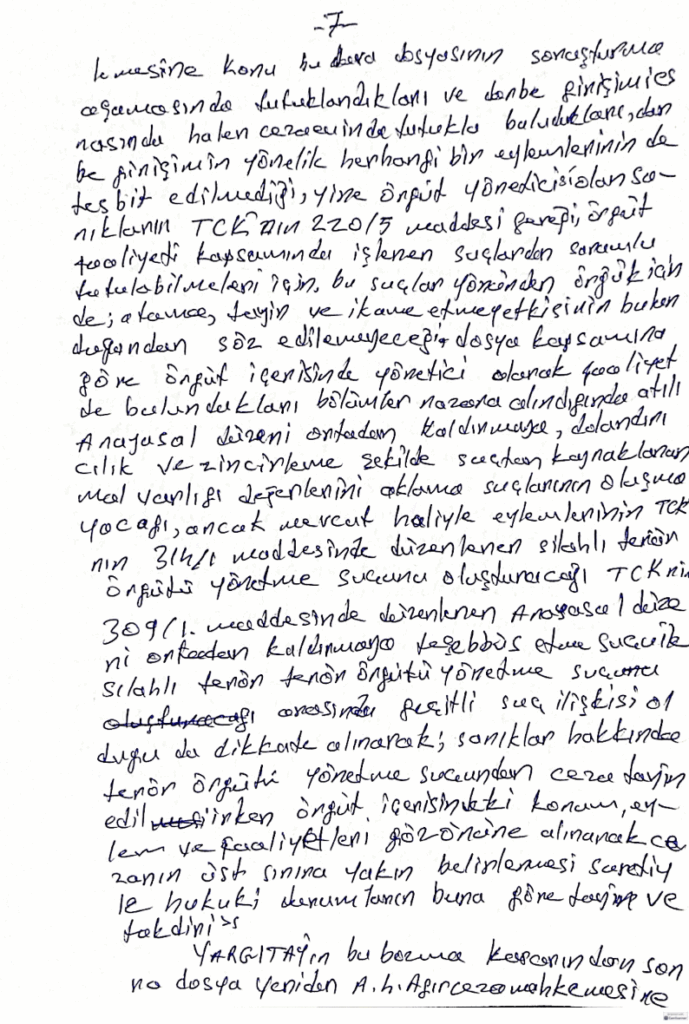 -7-
lemesine konu bu dava dosyasının soruşturma
aşamasında tutuklandıkları ve darbe girişimi es
nasında halen cezaevinde tutuklu buludukları, dar
be girişimin yönelik herhangi bir eylemlerinin de
tesbit edilmediği, yine örgüt yönedicisi olan sa-
nıkların TCK'nın 220/5 maddesi gereği, örgüt
faaliyeti kapsamında işlenen suçlardan sorumlu
tutulabilmeleri için, bu suçlar yönünden örgüt için
de; atama, tayin ve ikame etme yetkisinin bulun
duğundan söz edilemeyeceği, dosya kapsamına
göre örgüt içerisinde yönetici olarak faaliyet
de bulundukları bölümler nazara alındığında atılı
Anayasal düzeni ortadan kaldırmaya, dolandırı
cılık ve zincirleme şekilde suçtan kaynaklanan
mal varlığı değerlerini aklama suçlarının oluşma
yacağı, ancak mevcut haliyle eylemlerinin TCK
nın 314/1 maddesinde düzenlenen silahlı terör
örgütü yönetme suçunu oluşturacağı TCK nın
309/1. maddesinde düzenlenen Anayasal düze
ni ortadan kaldırmaya teşebbüs etme suçu ik
silahlı terör terör örgütü yönetme suçunu
oluşturacağı arasında geçitli suç ilişkisi ol
duğu da dikkate alınarak; sanıklar hakkında
terör örgütü yönetme suçundan ceza tayin
edilirken örgüt içerisindeki konum, ey-
lem ve faaliyetleri gözönüne alınarak ce
zanın üst sınına yakın belirlemesi suretiy
le hukuki durumların buna göre tayin ve
takdiri>>
YARGITAY'ın bu bozma kararından son
ra dosya yeniden A.h. Ağır ceza mahkemesine